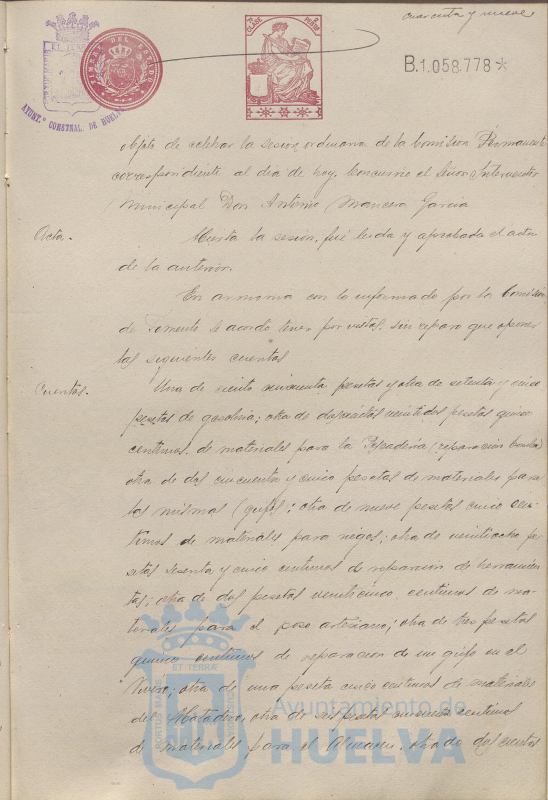 cuarenta y nueve
EL TERRÆ
AYUNT.º CONSTNAL. DE HUELVA
TIMBRE DEL ESTADO
CLASE
B.1.058.778*
objeto de celebrar la sesión ordinaria de la Comisión Permanente
correspondiente al día de hoy. Concurrió el Señor Interventor
Municipal Don Antonio Mancera García
Acta.
Abierta la sesión, fué leída y aprobada el acta
de la anterior.
En armonía con lo informado por la Comisión
de Fomento se acordó tener por vistas, sin reparo que oponer
las siguientes cuentas
Cuentas.
Una de ciento cincuenta pesetas y otra de setenta y cinco
pesetas de gasolina; otra de doscientas veintidos pesetas quince
centimos de materiales para la Pescadería (reparación
otra de dos cincuenta y cinco pesetas de materiales para
las mismas; otra de nueve pesetas cinco cen-
timos de materiales para riegos; otra de veintiocho pe-
setas sesenta y cinco centimos de reparación de herramien-
tas; otra de dos pesetas veinticinco centimos de ma-
teriales para el pozo artesiano; otra de tres pesetas
quince centimos de reparación de un grifo en el
Vivero; otra de una peseta cinco centimos de materiales
del Matadero; otra de seis pesetas centimos
de materiales para el Almacen; otra de dos cientas
PORTUS MARIS
ET TERRÆ
Ayuntamiento de
HUELVA